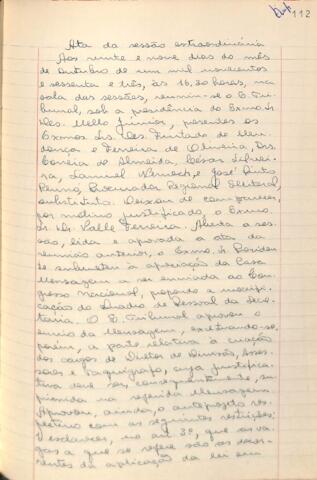 112
Ata da sessão extraordinária
Aos vinte e nove dias do mês
de outubro de um mil novecentos
e sessenta e três, às 16,30 horas, na
sala das sessões, reuniu-se o E. Tri-
bunal, sob a presidência do Exmo. Sr.
Des. Mello Junior, presentes os
Exmos. Srs. Des. Furtado de Men-
donça e Ferreira de Oliveira, Drs.
Correia de Almeida, César Silvei-
ra, Samuel e José Pinto
Renno, Procurador Regional Eleitoral,
substituto. Deixou de comparecer,
por motivo justificado, o Exmo.
Sr. Dr. Valle Ferreira. Aberta a ses-
são, lida e aprovada a ata da
reunião anterior, o Exmo. Sr. Presiden-
te submeteu à apreciação da Casa
Mensagem a ser enviada ao Con-
gresso Nacional, propondo a modifi-
cação do Quadro de Pessoal da Secre-
taria. O E. Tribunal aprovou o
envio da Mensagem, excetuando-se,
porém, a parte relativa à criação
dos cargos de Diretor de Divisão, Asses-
sores e Taquígrafo, cuja justifica-
tiva deve ser, consequentemente, su-
primida na referida Mensagem.
Aprovou, ainda, o anteprojeto res-
pectivo com as seguintes restrições:
esclarecer, no art. 3º, que as va-
gas a que se refere são as decor-
rentes da aplicação da lei em